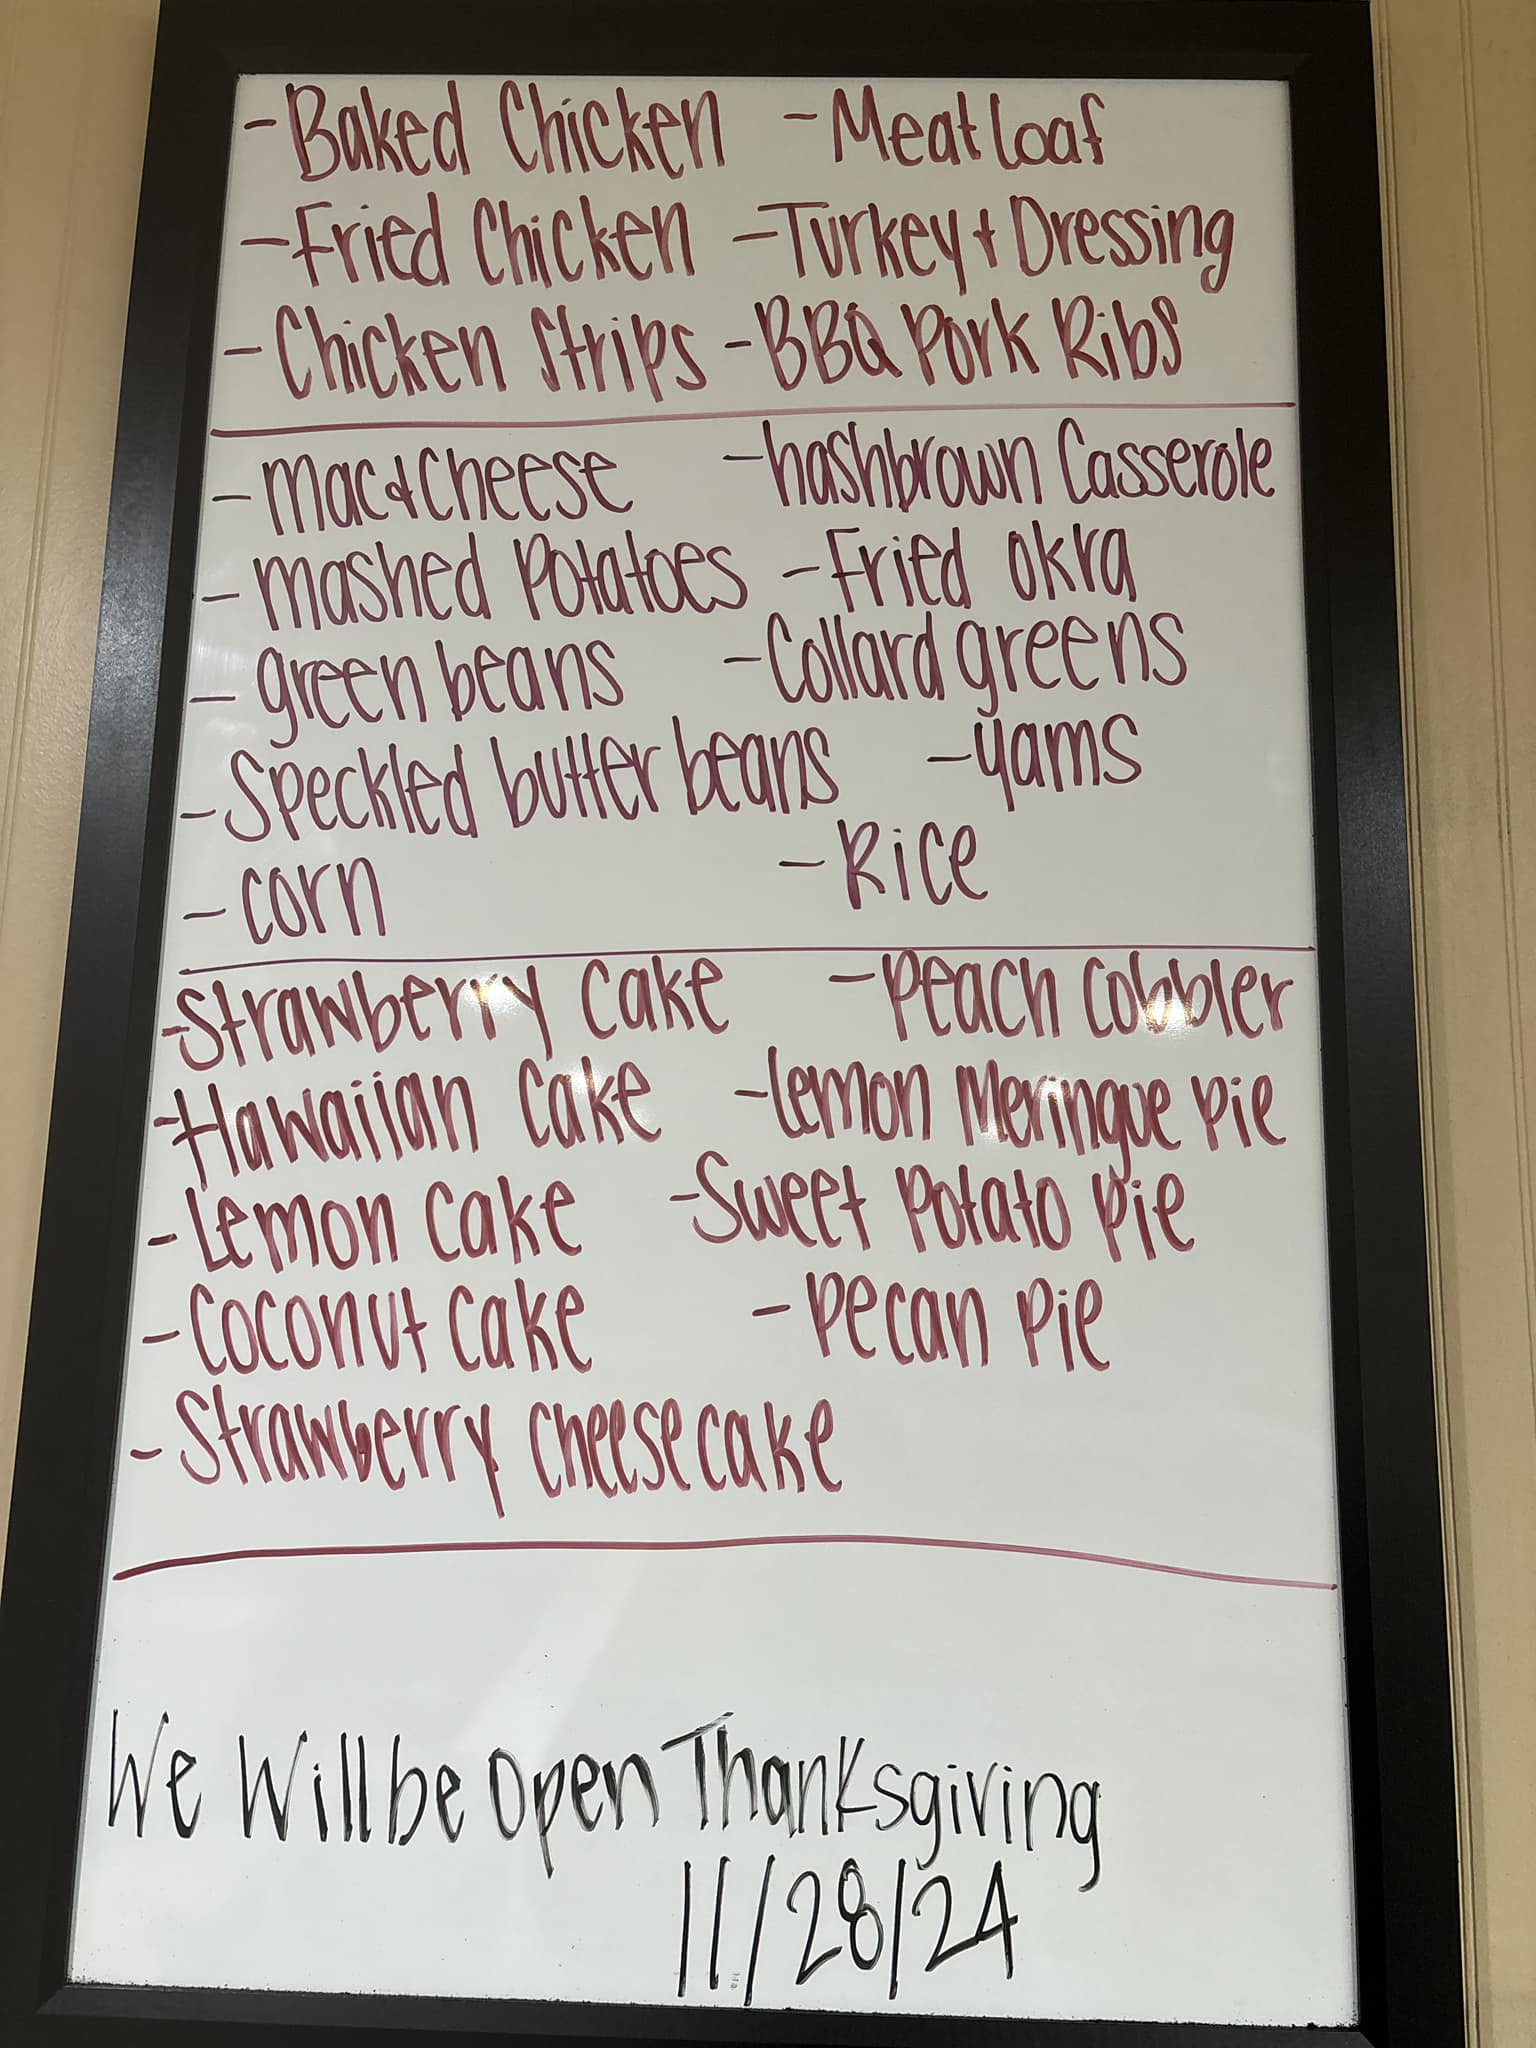 - Baked Chicken - Meatloaf
- Fried Chicken - Turkey + Dressing
- Chicken Strips - BBQ Pork Ribs
- Mac & Cheese - hashbrown Casserole
- Mashed Potatoes - Fried Okra
- green beans - Collard greens
- Speckled butter beans - yams
- Corn - Rice
- Strawberry Cake - Peach Cobbler
- Hawaiian Cake - Lemon Meringue Pie
- Lemon Cake - Sweet Potato Pie
- Coconut Cake - Pecan Pie
- Strawberry Cheesecake
We Will be Open Thanksgiving
11/28/24